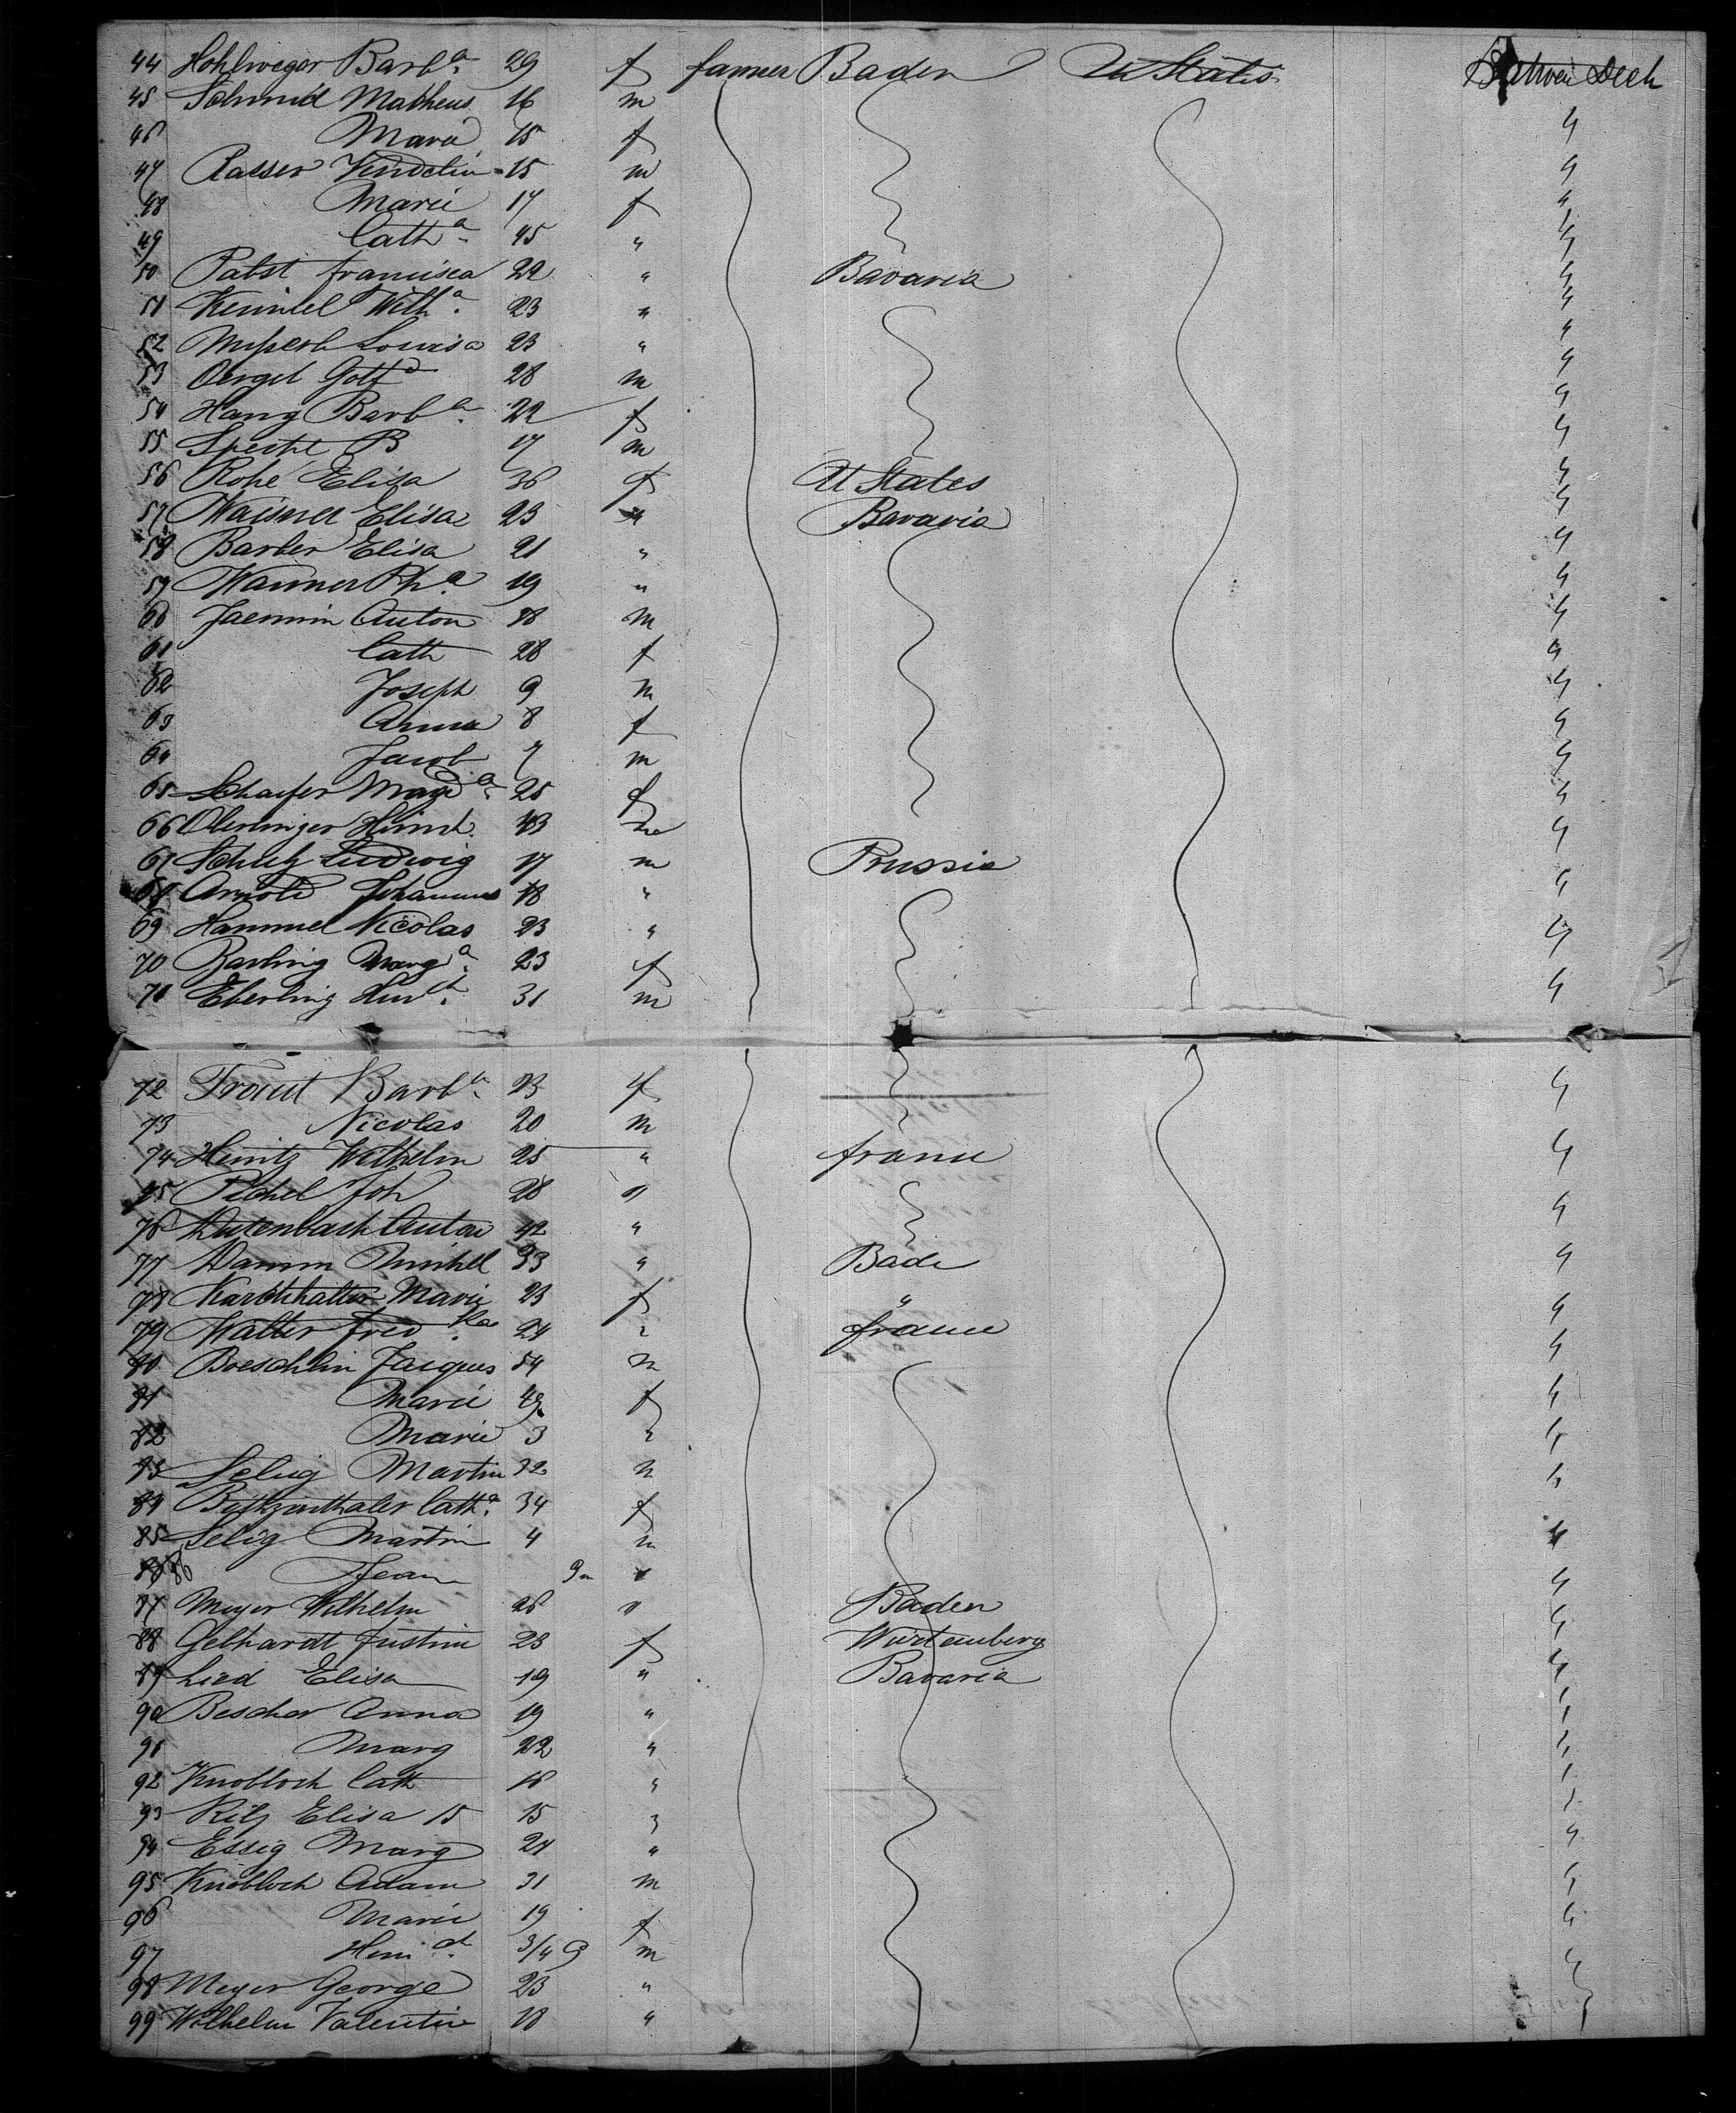 44 Hohlweger Barb a. 29 f farmer Baden U States Between Deck
45 Schmid Matheus 16 m
46 Marie 15 f "
47 Kaeser Vendelin 15 m "
48 Marie 17 f "
49 Cath a. 45 " "
50 Pabst francisca 22 " Bavaria "
51 Kemmel Wilh a. 23 " "
52 Louisa 23 " "
53 Oergel Gottf d 28 m "
54 Hang Barb a. 22 f "
55 Specht B 17 m "
56 Rohe Elisa 36 f U States "
57 Elisa 23 " Bavaria "
58 Barber Elisa 21 " "
59 Wanner Ph a. 19 " "
60 Anton 38 m "
61 Cath 28 f "
62 Joseph 9 m "
63 Anna 8 f "
64 Jacob 7 m "
65 Schaefer Magd a. 25 f "
66 43 m "
67 Schulz Ludwig 17 m Prussia
68 Arnold Johannes 18 " "
69 Hammel Nicolas 23 " "
70 Marg a. 23 f
71 Eberling 31 m "
72 Traut Barb a. 23 f "
73 Nicolas 20 m
74 Heinitz Wilhelm 25 " france "
75 Pichel Joh 28 "
76 Anton 42 " "
77 Damm Michel 33 " Bade "
78 Marie 23 f "
79 Walter fred 24 " france "
80 Boeschlin Jacques 54 m "
81 Marie 43 f "
82 Marie 3 " "
83 Selig Martin 32 m "
84 Cath a. 34 f "
85 Selig Martin 4 m "
86 Jean 9 m "
87 Meyer Wilhelm 26 " Baden "
88 Gebhardt Justine 23 f Wurtemberg "
89 Lied Elisa 19 " Bavaria "
90 Bescher Anna 19 " "
91 Marg 22 " "
92 Knobloch Cath 16 " "
93 Rilz Elisa 15 15 " "
94 Essig Marg 24 " "
95 Knobloch Adam 31 m "
96 Marie 19 f "
97 3/4 9 m "
98 Meyer George 23 " "
99 Wilhelm Valentin 18 " "